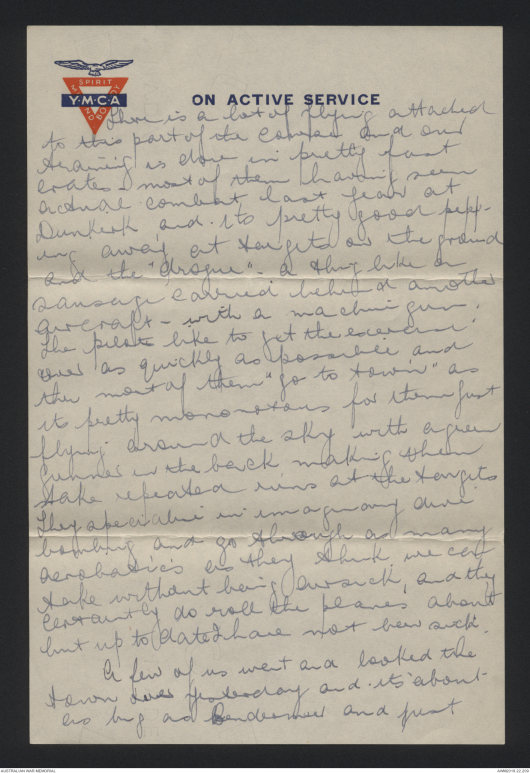 SPIRIT
Y·M·C·A
MIND
BODY
ON ACTIVE SERVICE
There is a lot of flying attached
to this part of the course and our
training is done in pretty fast
crates - most of them having seen
actual combat last year at
Dunkirk and its pretty good pepp-
ing away at targets on the ground
and the "drogue" - a thing like a
sausage carried behind another
aircraft - with a machine gun.
The pilots like to get the exercise
over as quickly as possible and
then most of them "go to town" as
its pretty monotonous for them just
flying around the sky with a green
gunner in the back making them
take repeated runs at the targets
They specialise in imaginary dive
bombing and go through as many
aerobatics as they think we can
take without being airsick, and they
certaintly do roll the planes about
but up to date I have not been sick.
A few of us went and looked the
town over yesterday and its about
as big as and just
AUSTRALIAN WAR MEMORIAL